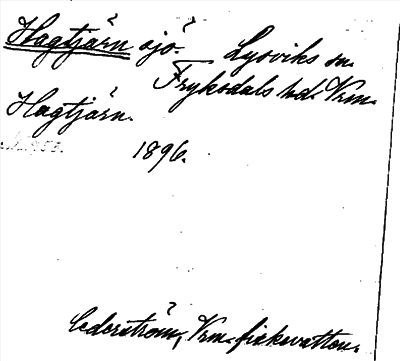 Hagtjärn sjö Lysviks sn.
Fryksdals hd. Vrm.
Hagtjärn.
1896.
Cederström, Vrm. fiskevatten.